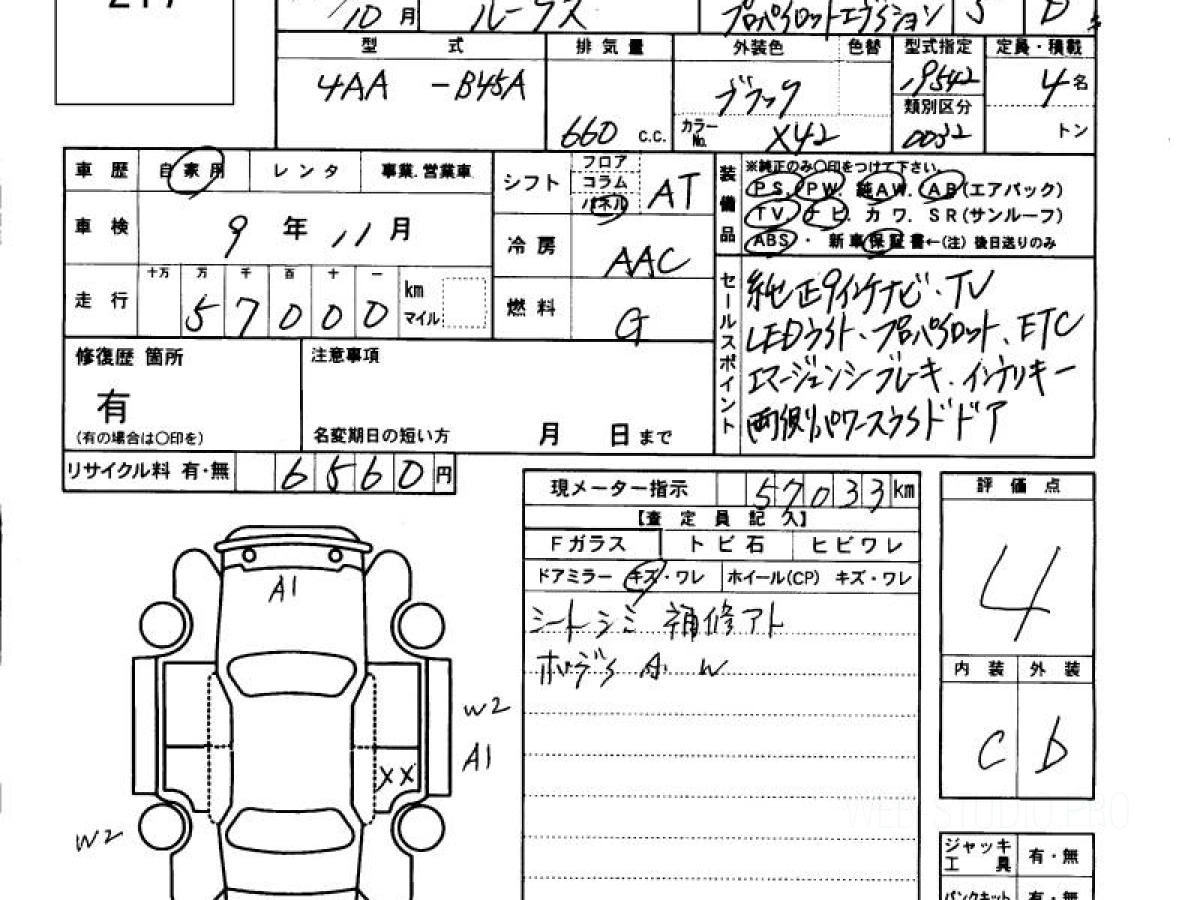 10月 ルークス プロパイロットエディション 5 D
型 式 排気量 外装色 色替 型式指定 定員・積載
4AA -B45A 660 c.c. ブラック 19542 4名
カラーNo. X42 類別区分 0032 トン
車歴 自家用 レンタ 事業.営業車
車検 9年11月
走行 十万 万 千 百 十 一
57000 km マイル
シフト フロア コラム パネル AT
冷房 AAC
燃料 G
装備品 ※純正のみ〇印をつけて下さい。
PS. PW. 純AW. AB(エアバック)
TV ナビ. カワ. SR(サンルーフ)
ABS・新車保証書←(注)後日送りのみ
セールスポイント
純正9インチナビ・TV
LEDライト、プロパイロット、ETC
エマージェンシーブレーキ、インテリキー
両側パワースライドドア
修復歴 箇所
有
(有の場合は〇印を)
注意事項
名変期日の短い方 月 日まで
リサイクル料 有・無 6560円
現メーター指示 57033km
【査定員記入】
Fガラス トビ石 ヒビワレ
ドアミラー キズ・ワレ ホイール(CP) キズ・ワレ
シートシミ 補修アト
ボディ A. W
評価点
4
内装 外装
C b
A1
W2
A1
XX
W2
ジャッキ工具 有・無
パンクキット 有・無
WEB STUDIO PRO